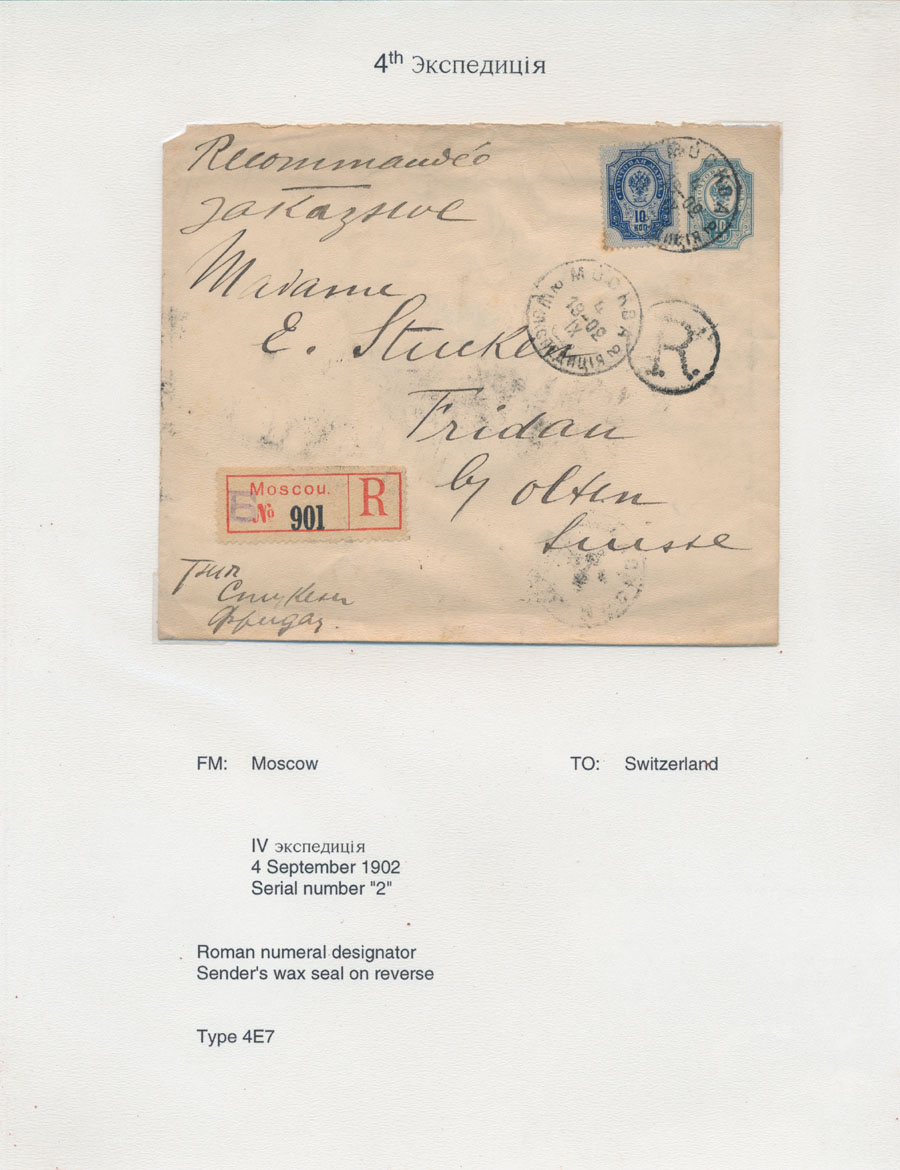 4th Экспедиція
Recommandéе
заказное
ПОЧТОВАЯ МАРКА
10
КОП
МОСКВА
Madame
МОСКВА 2
4
IX
E. Stucken
R
Fridau
by Olten
Suisse
Moscou.
Б № 901 R
Фридау
FM: Moscow TO: Switzerland
IV экспедиція
4 September 1902
Serial number "2"
Roman numeral designator
Sender's wax seal on reverse
Type 4E7